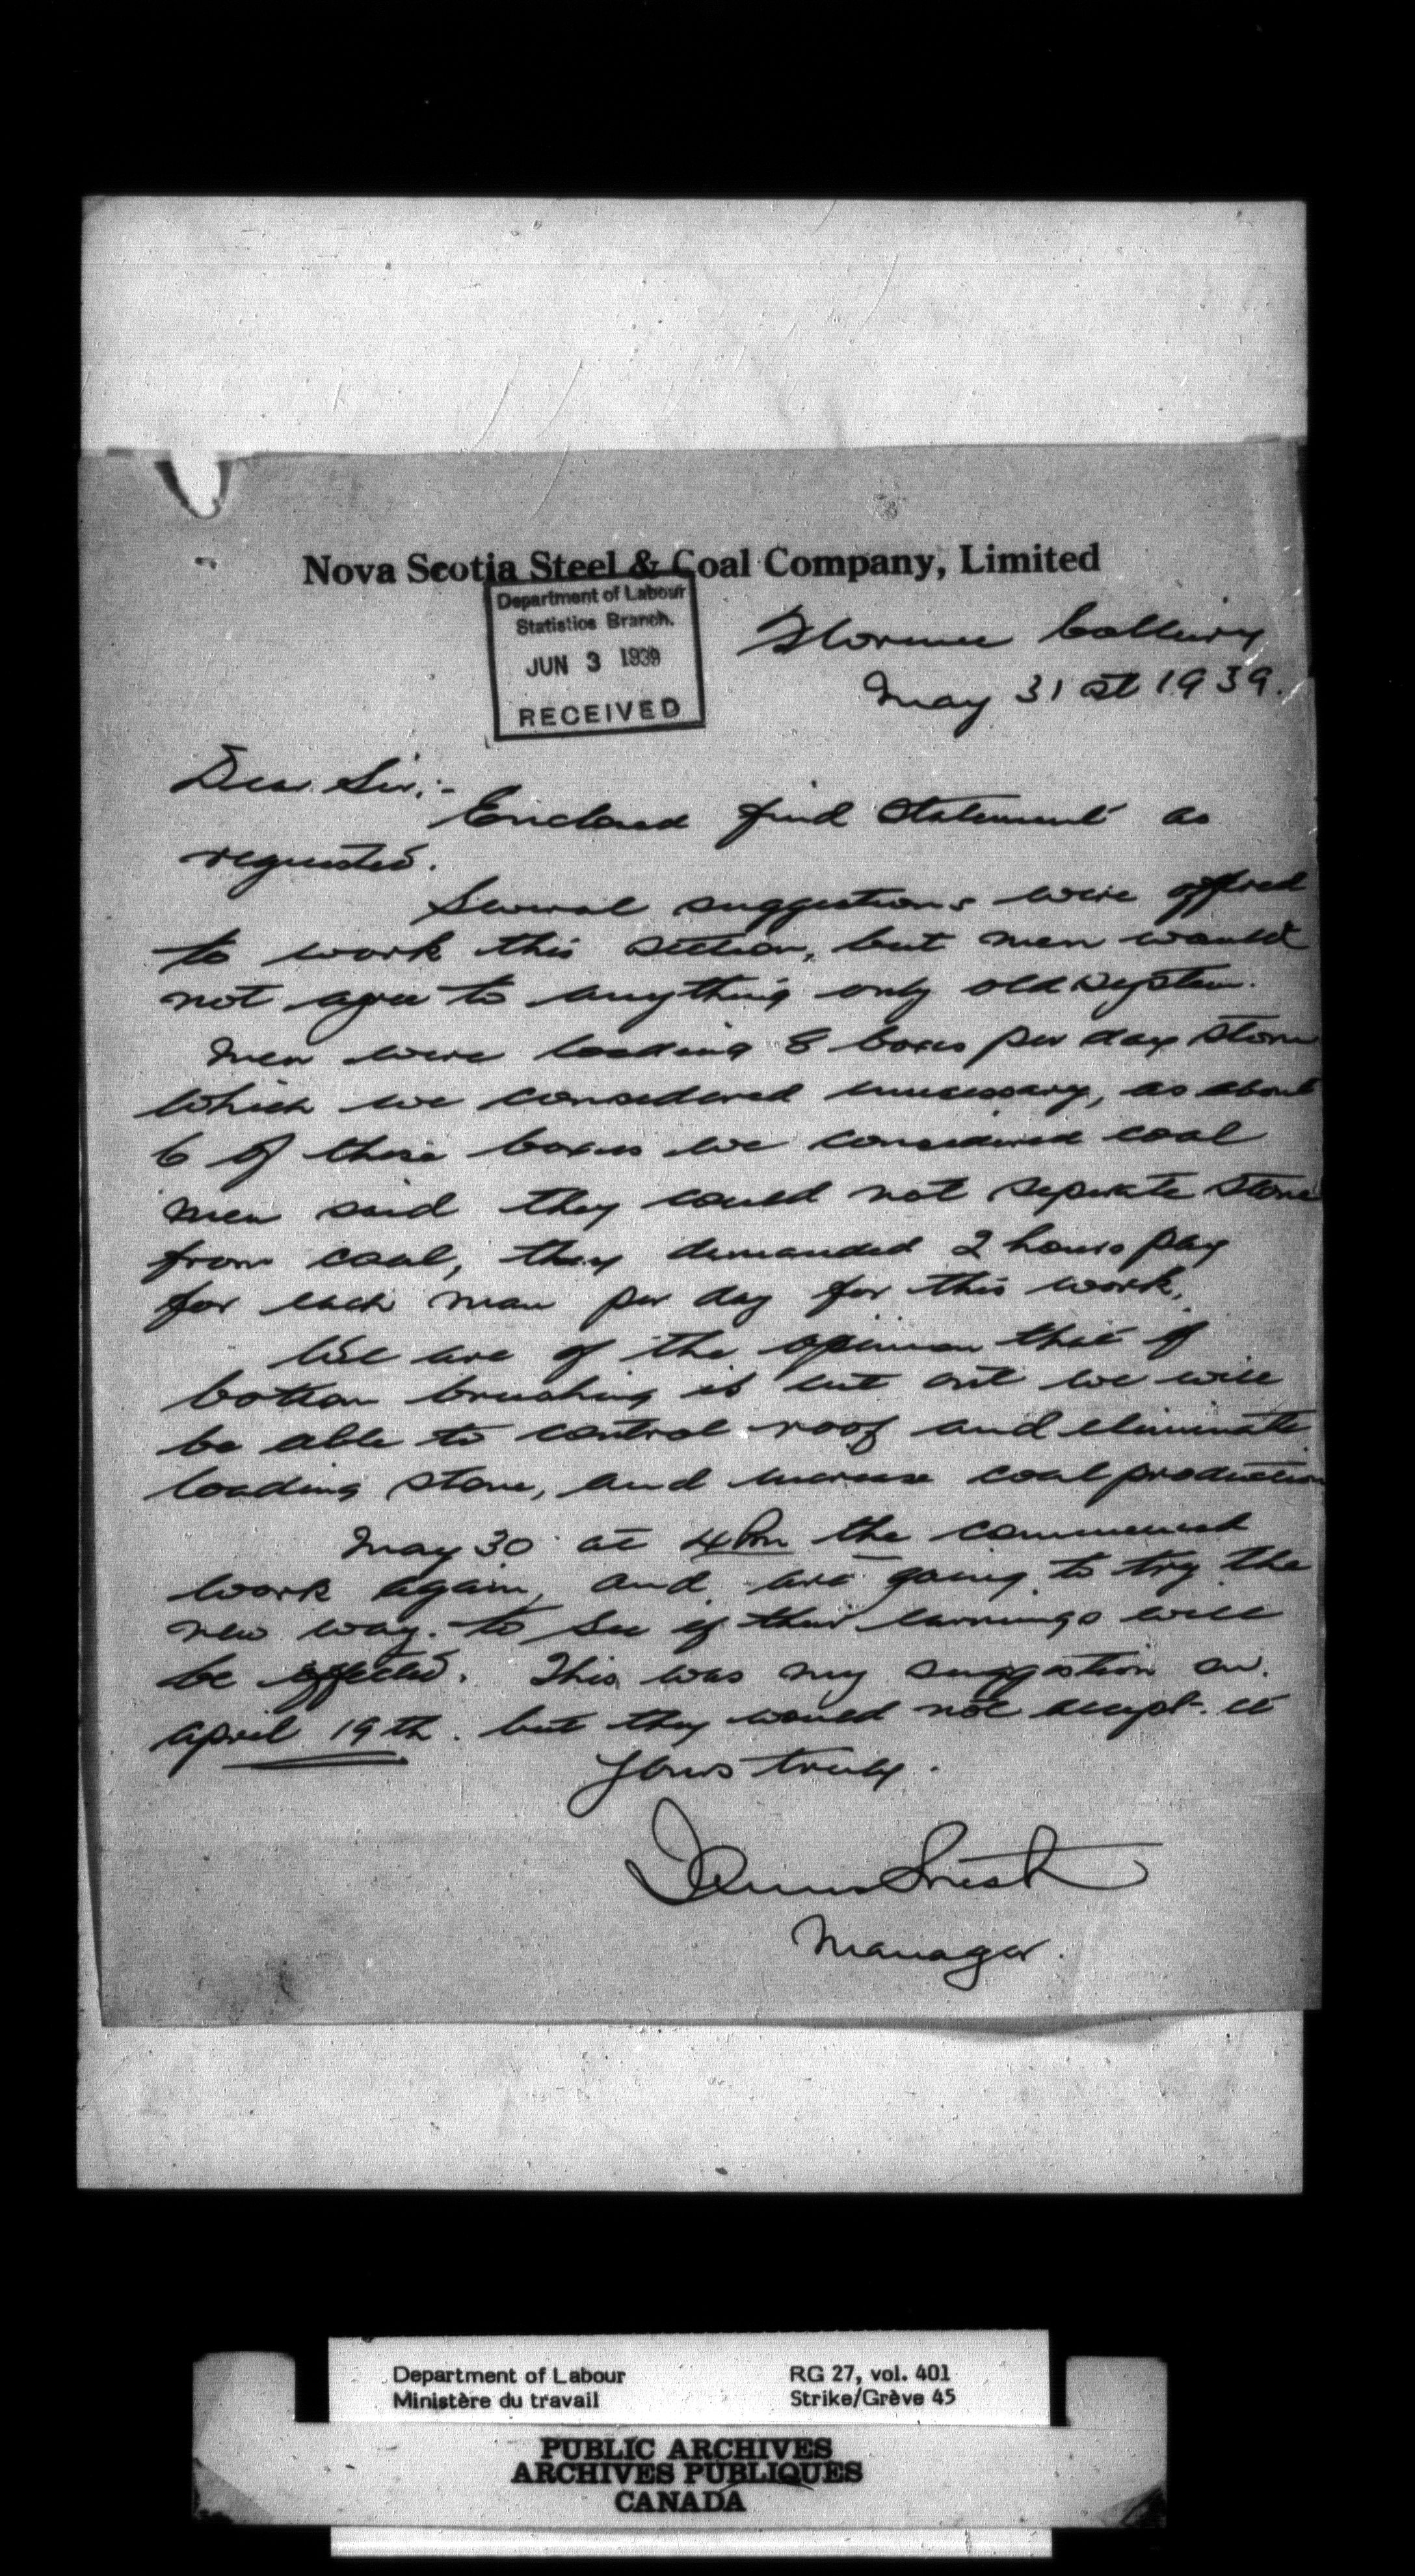 Nova Scotia Steel & Coal Company, Limited
Department of Labour
Statistics Branch.
JUN 3 1939
RECEIVED
Florence Colliery
May 31st 1939.
Dear Sir:-
Enclosed find statement as
requested.
Several suggestions were offered
to work this section, but men would
not agree to anything only old system.
Men were loading 8 boxes per day stone
which we considered unnecessary, as about
6 of these boxes we considered coal
men said they could not seperate stone
from coal, they demanded 2 hours pay
for each man per day for this work.
We are of the opinion that if
bottom brushing is cut out we will
be able to control roof and eliminate
loading stone, and increase coal production
May 30 at 4 Pm the commenced
work again, and are going to try the
new way. to see if their earnings will
be effected. This was my suggestion on.
April 19th. but they would not accept it
Yours truly.
Manager.
Department of Labour
Ministère du travail
RG 27, vol. 401
Strike/Grève 45
PUBLIC ARCHIVES
ARCHIVES PUBLIQUES
CANADA